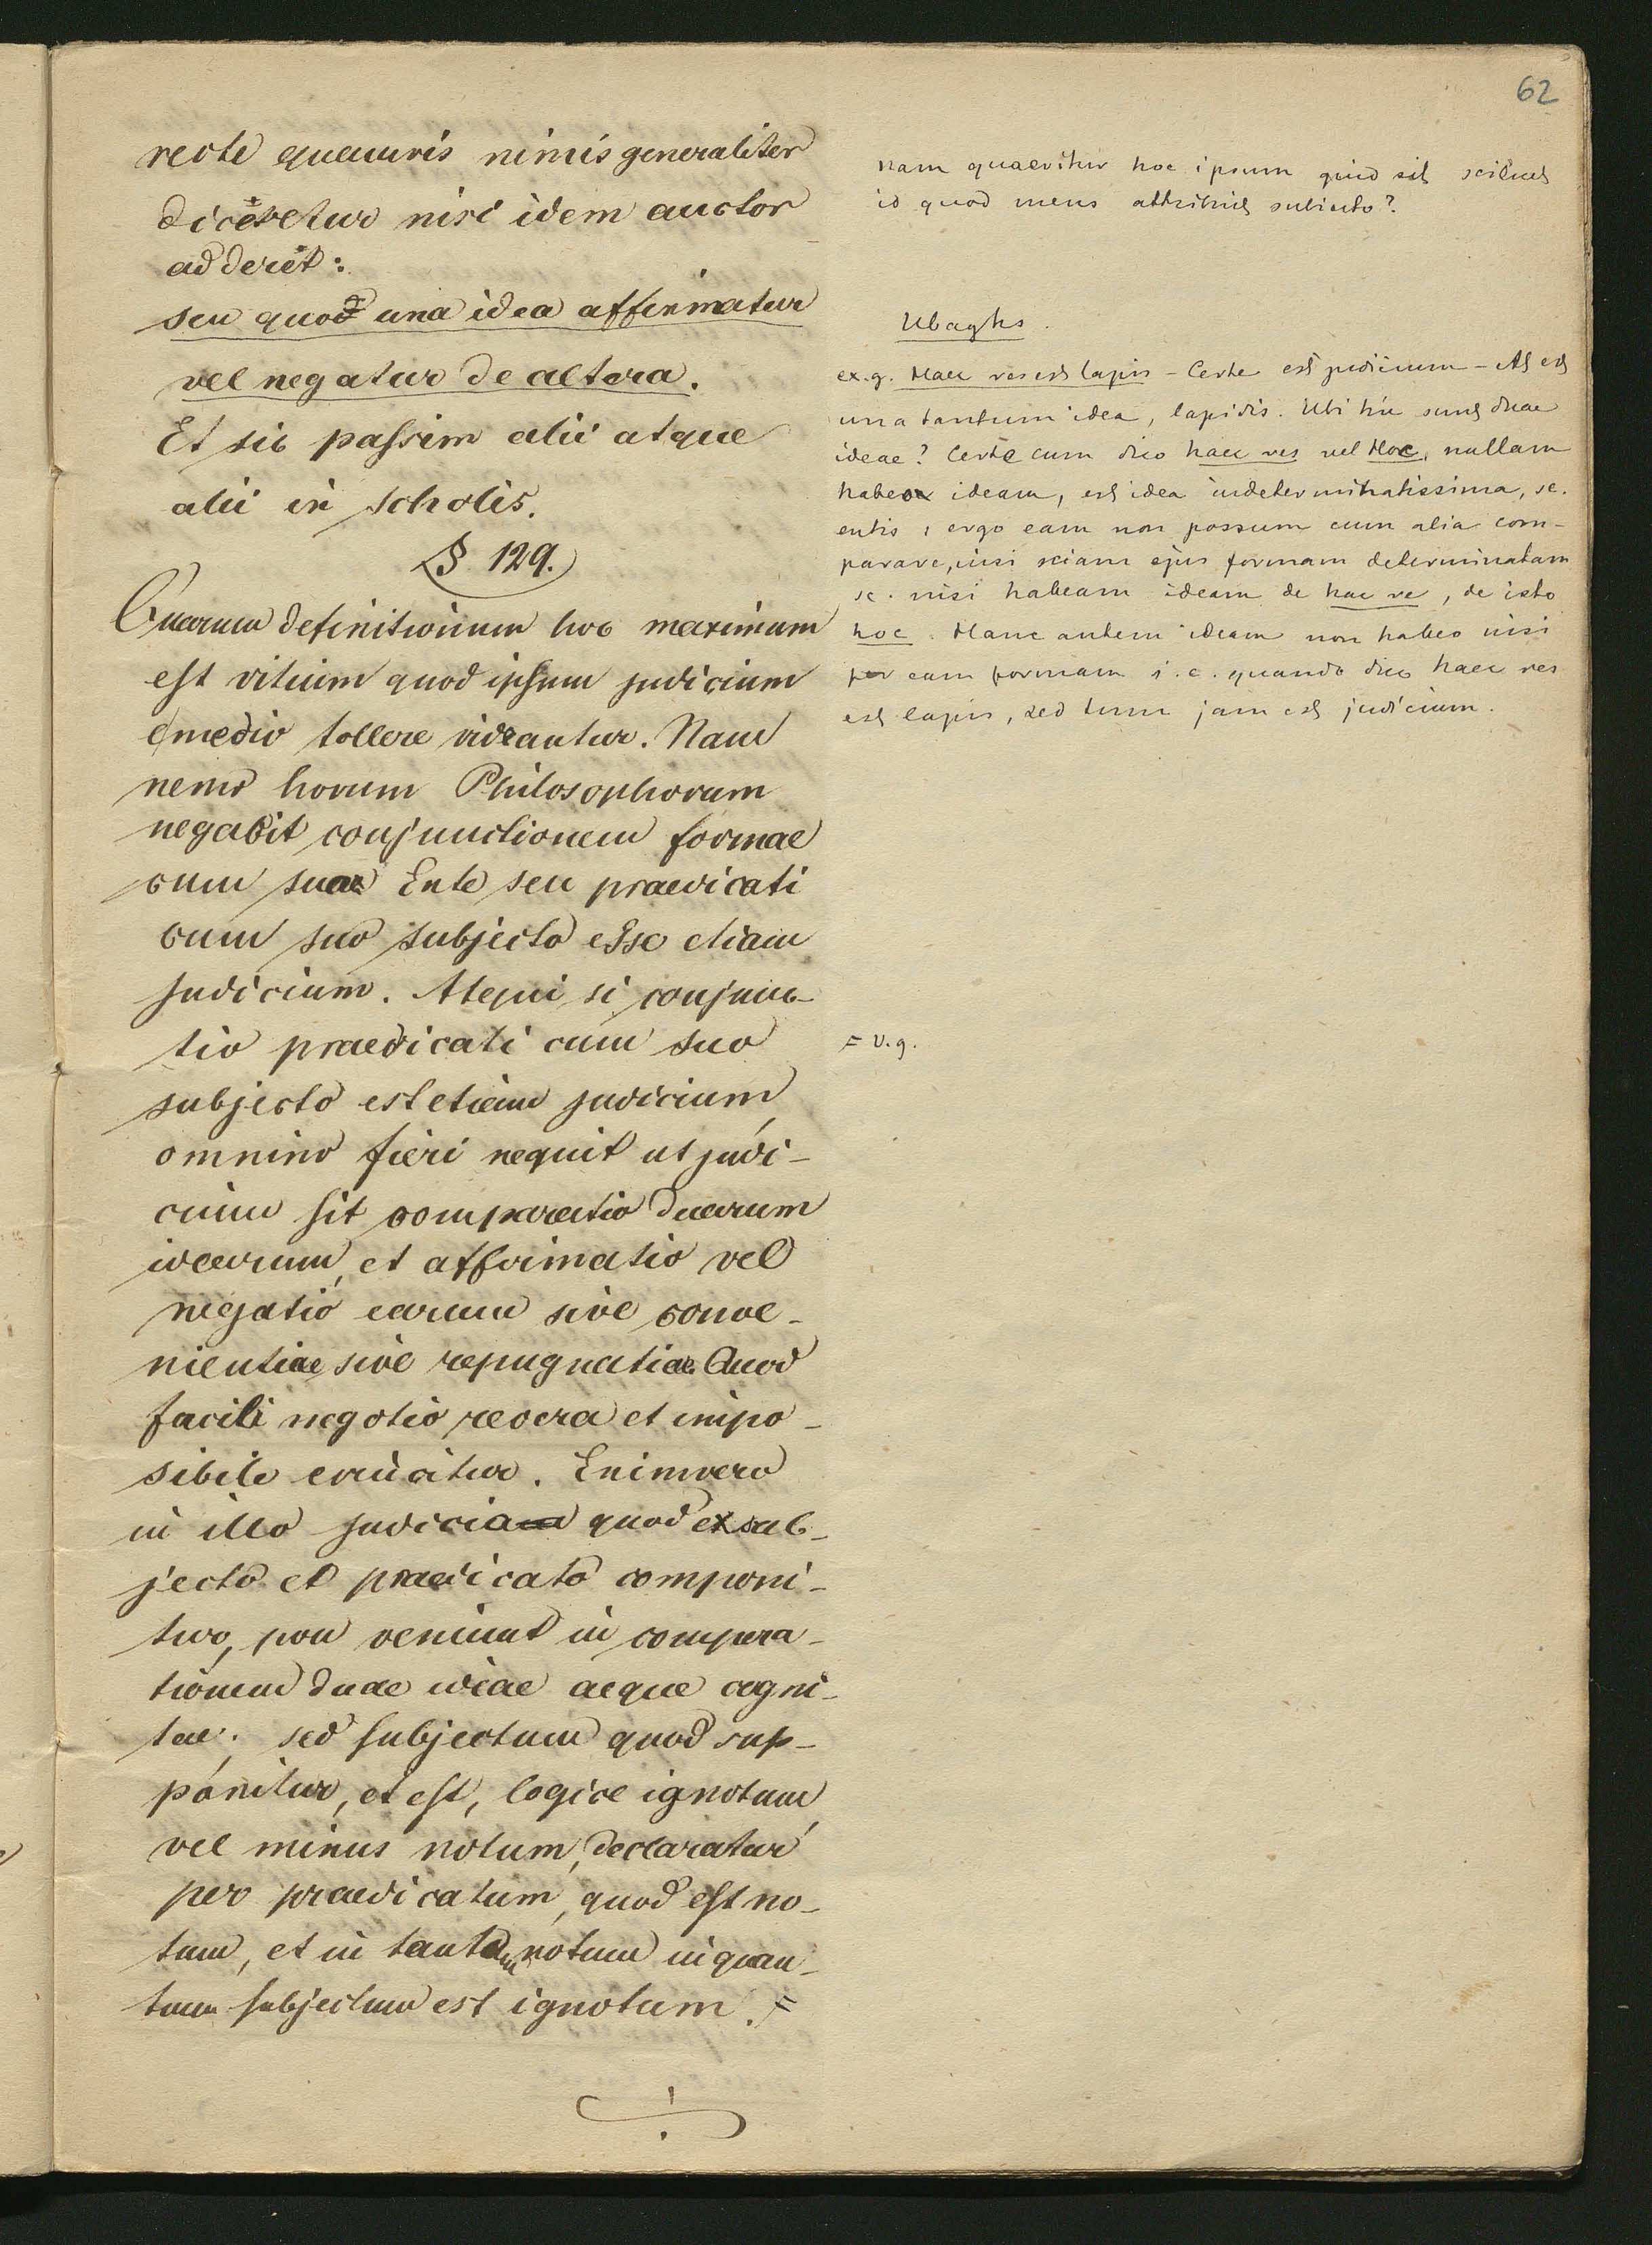 62
recte quamvis nimis generaliter
diceretur nisi idem auctor
adderet:
seu quod una idea affirmatur
vel negatur de altera.
Et sic passim alii atque
alii in scholis.
§ 129.
Quarum definitionum hoc maximum
est vitium quod ipsum judicium
e medio tollere videantur. Nam
nemo horum Philosophorum
negabit conjunctionem formae
cum suo Ente seu praedicati
cum suo subjecto esse etiam
judicium. Atqui si conjunc-
tio praedicati cum suo
subjecto est etiam judicium,
omnino fieri nequit ut judi-
cium sit comparatio duarum
idearum, et affirmatio vel
negatio earum sive conve-
nientiae sive repugnatiae. Quod
facili negotio revera et impo-
sibile evincitur. Enimvero
in illo judicio quod ex sub-
jecto et praedicato componi-
tur, non veniunt in compara-
tionem duae ideae aeque cogni-
tae; sed subjectum quod sup-
ponitur, et est, logice ignotum,
vel minus notum, declaratur
per praedicatum, quod est no-
tum, et in tantum notum in quan-
tum subjectum est ignotum. =
nam quaeritur hoc ipsum quid sit scilicet
id quod mens attribuit subiecto?
Ubaghs.
ex. g. Haec res est lapis - Certe est judicium - At est
una tantum idea, lapidis. Ubi hic sunt duae
ideae? Certe cum dico haec res vel Hoc, nullam
habeo ideam, est idea indeterminatissima, sc.
entis; ergo eam non possum cum alia com-
parare, nisi sciam ejus formam determinatam
sc. nisi habeam ideam de hac re, de isto
hoc. Hanc autem ideam non habeo nisi
per eam formam i. e. quando dico haec res
est lapis, sed tum jam est judicium.
= v. g.